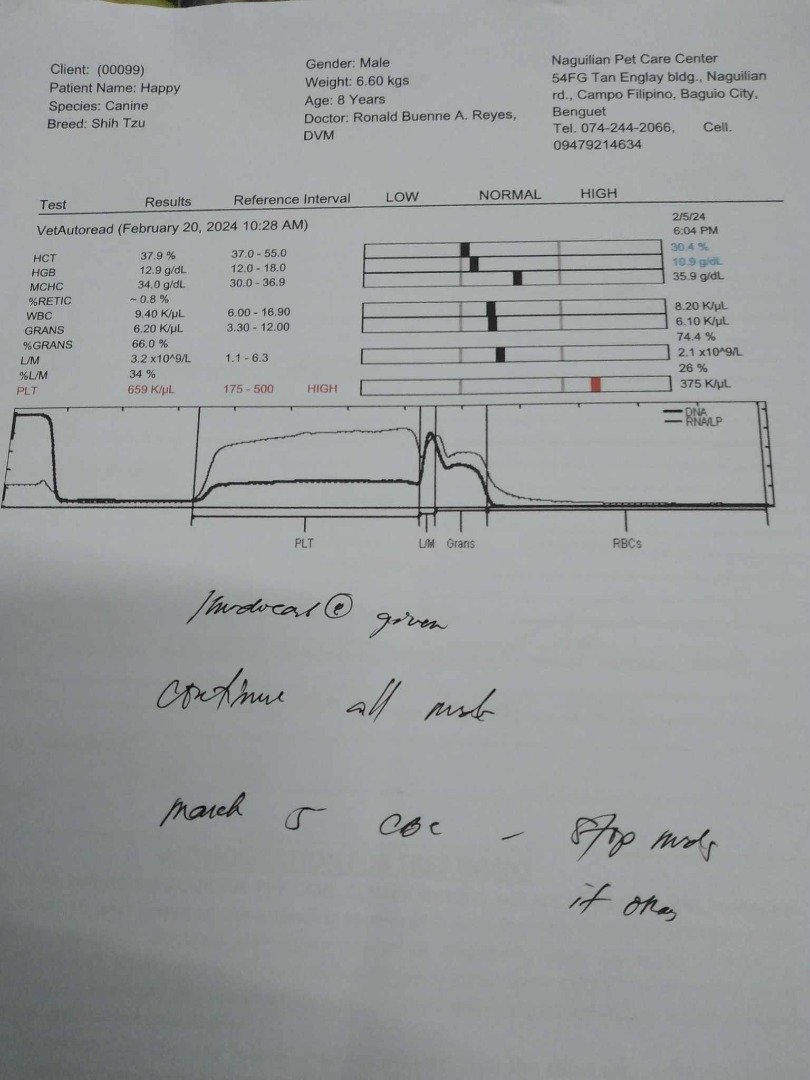 Client: (00099)
Patient Name: Happy
Species: Canine
Breed: Shih Tzu
Gender: Male
Weight: 6.60 kgs
Age: 8 Years
Doctor: Ronald Buenne A. Reyes,
DVM
Naguilian Pet Care Center
54FG Tan Englay bldg., Naguilian
rd., Campo Filipino, Baguio City,
Benguet
Tel. 074-244-2066, Cell.
09479214634
Test Results Reference Interval LOW NORMAL HIGH
VetAutoread (February 20, 2024 10:28 AM) 2/5/24
6:04 PM
HCT 37.9 % 37.0 - 55.0 30.4 %
HGB 12.9 g/dL 12.0 - 18.0 10.9 g/dL
MCHC 34.0 g/dL 30.0 - 36.9 35.9 g/dL
%RETIC ~ 0.8 %
WBC 9.40 K/µL 6.00 - 16.90 8.20 K/µL
GRANS 6.20 K/µL 3.30 - 12.00 6.10 K/µL
%GRANS 66.0 % 74.4 %
L/M 3.2 x10^9/L 1.1 - 6.3 2.1 x10^9/L
%L/M 34 % 26 %
PLT 659 K/µL 175 - 500 HIGH 375 K/µL
DNA
RNA/LP
PLT L/M Grans RBCs
given
continue all meds
March 5 CBC - stop meds
if okay